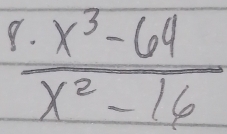 8. x³ - 64
x² - 16